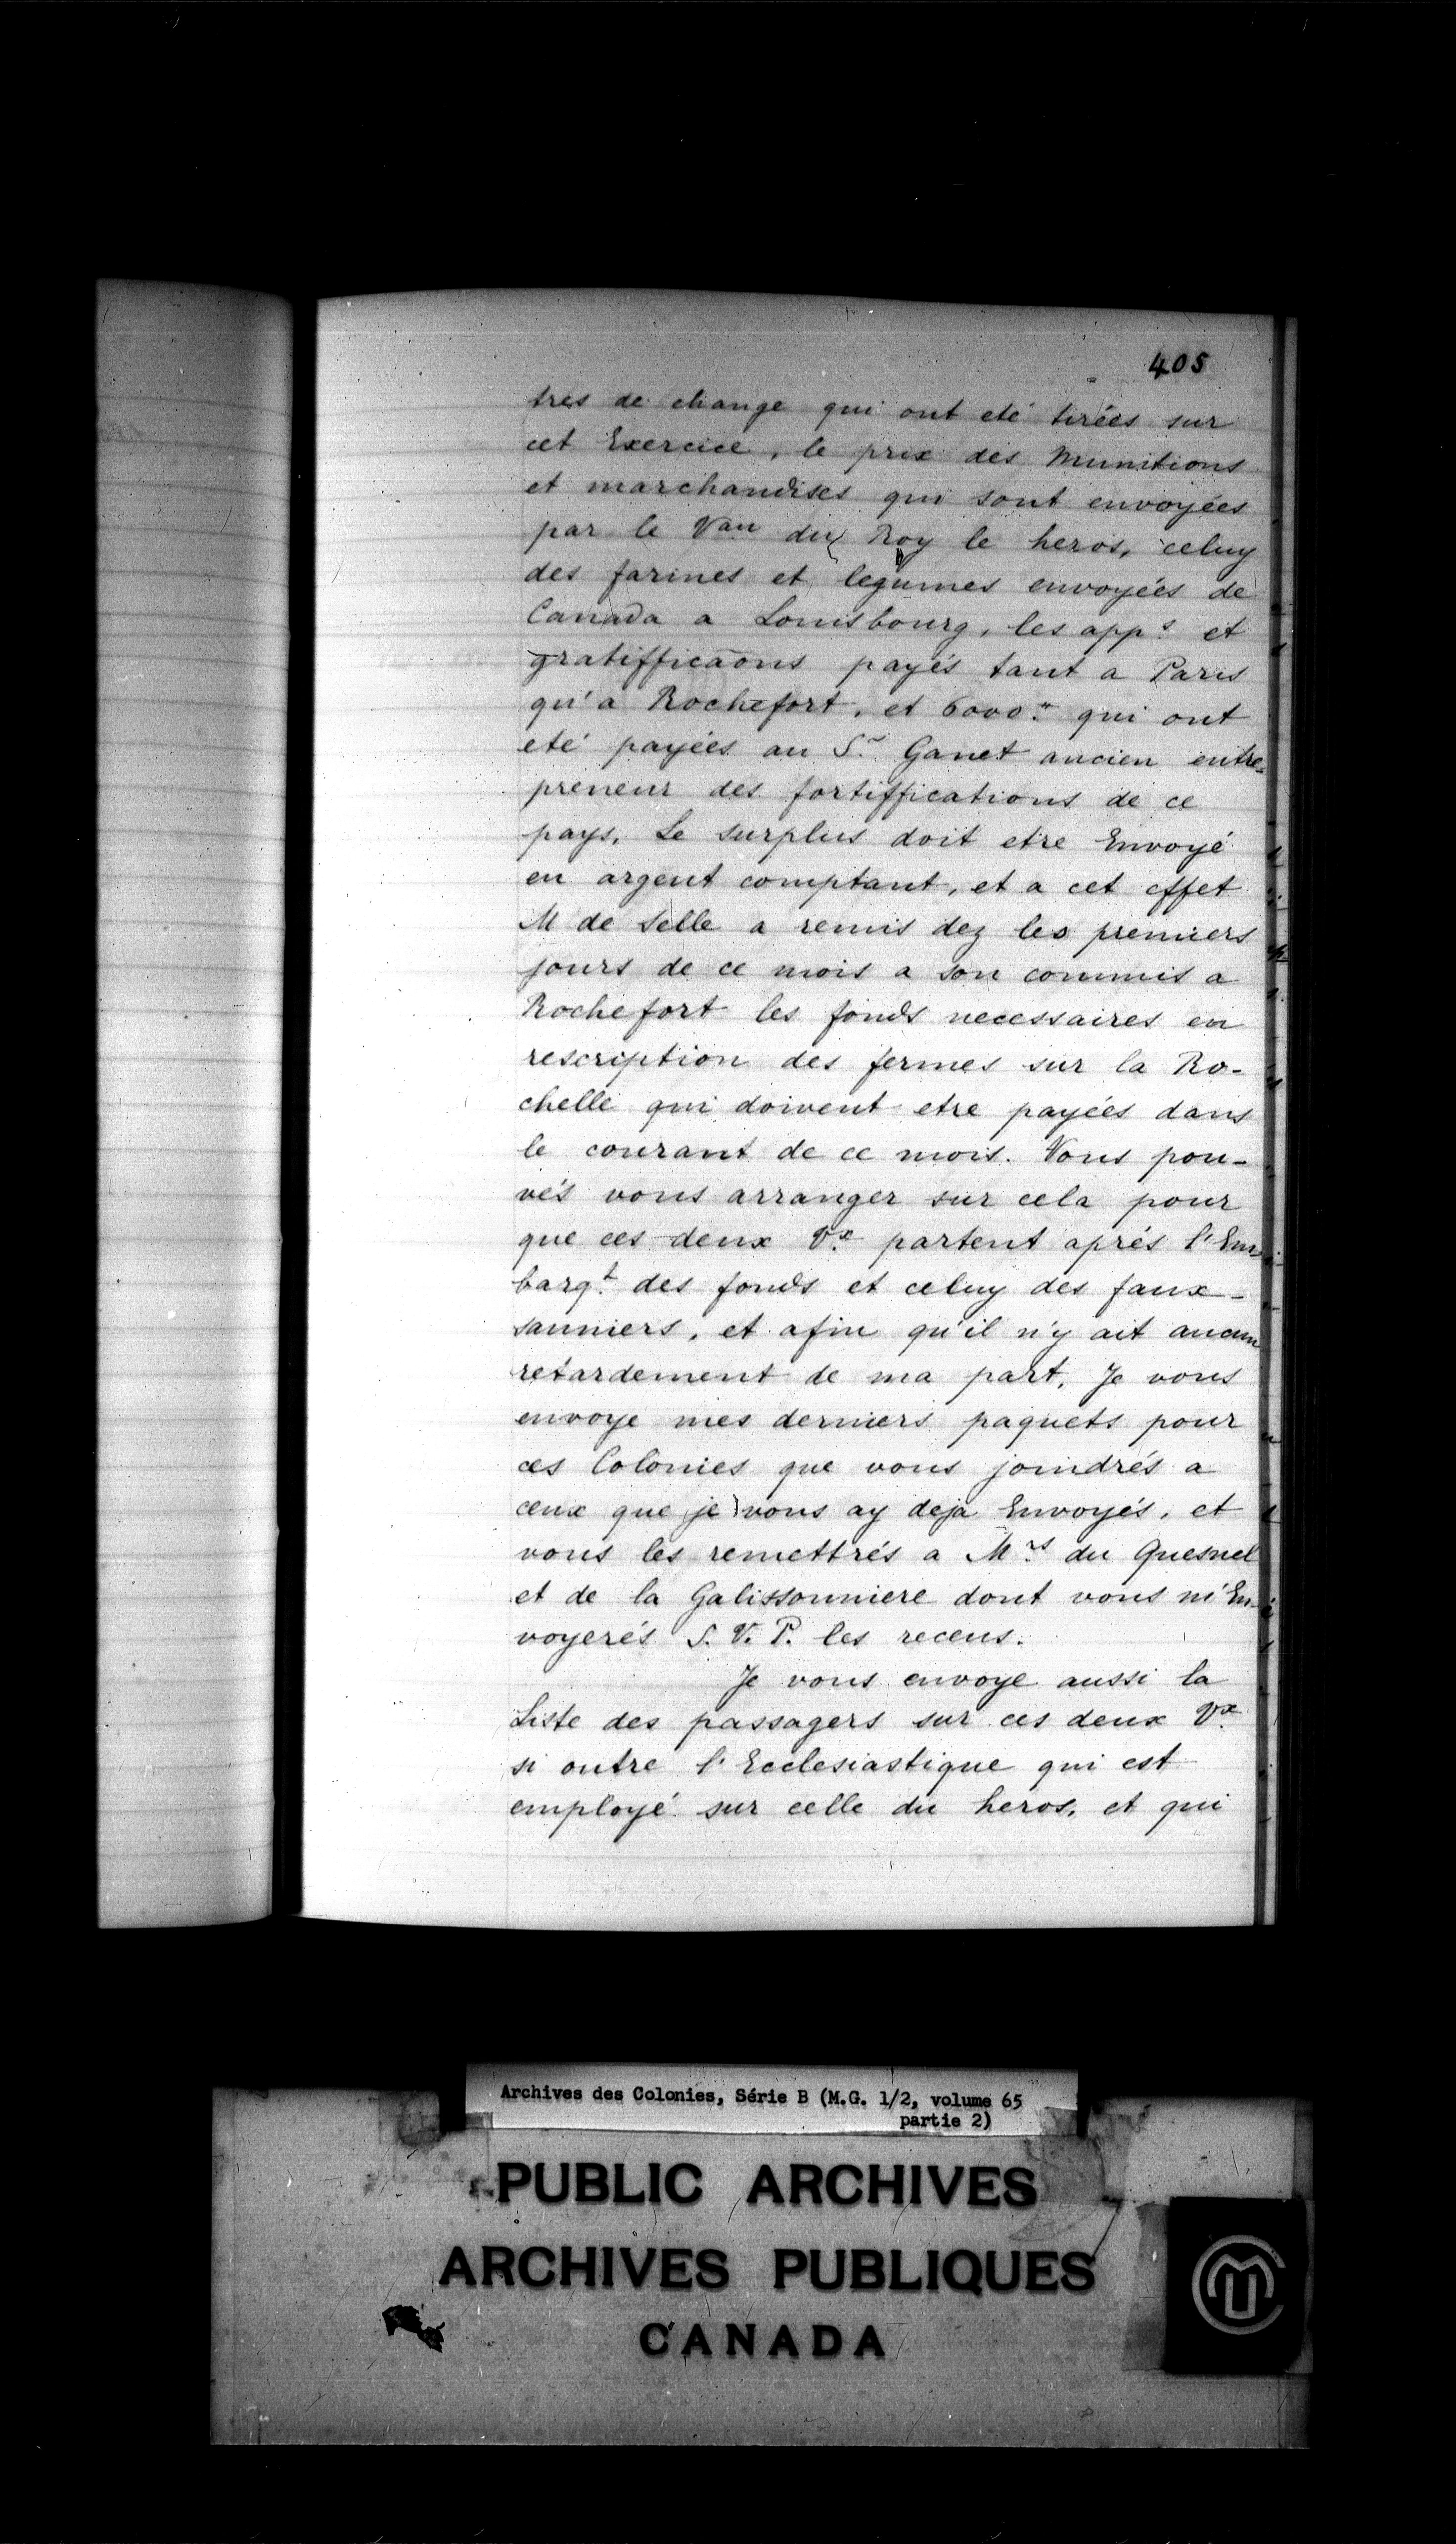 405
tres de change qui ont eté tirées sur
cet Exercice, le prix des Munitions
et marchandises qui sont envoyées
par le Vau du Roy le heros, celuy
des farines et legumes envoyées de
Canada a Louisbourg, les app.s et
gratifficaõns payés tant a Paris
qu'a Rochefort, et 6000.tt qui ont
eté payées au S.r Ganet ancien entre-
preneur des fortiffications de ce
pays, Le surplus doit etre Envoyé
en argent comptant, et a cet effet
M de Selle a remis dez les premiers
jours de ce mois a son commis a
Rochefort les fonds necessaires en
rescription des fermes sur la Ro-
chelle qui doivent etre payées dans
le courant de ce mois. Vous pou-
vés vous arranger sur cela pour
que ces deux V.x partent aprés l'Em-
barq.t des fonds et celuy des faux-
sauniers, et afin qu'il n'y ait aucun
retardement de ma part, Je vous
envoye mes derniers paquets pour
ces Colonies que vous joindrés a
ceux que je vous ay deja Envoyés, et
vous les remettrés a M.rs du Quesnel
et de la Galissonniere dont vous m'En-
voyerés S. V. P. les recens.
Je vous envoye aussi la
Liste des passagers sur ces deux V.x
si outre l'Ecclesiastique qui est
employé sur celle du heros, et qui
Archives des Colonies, Série B (M.G. 1/2, volume 65
partie 2)
PUBLIC ARCHIVES
ARCHIVES PUBLIQUES
CANADA